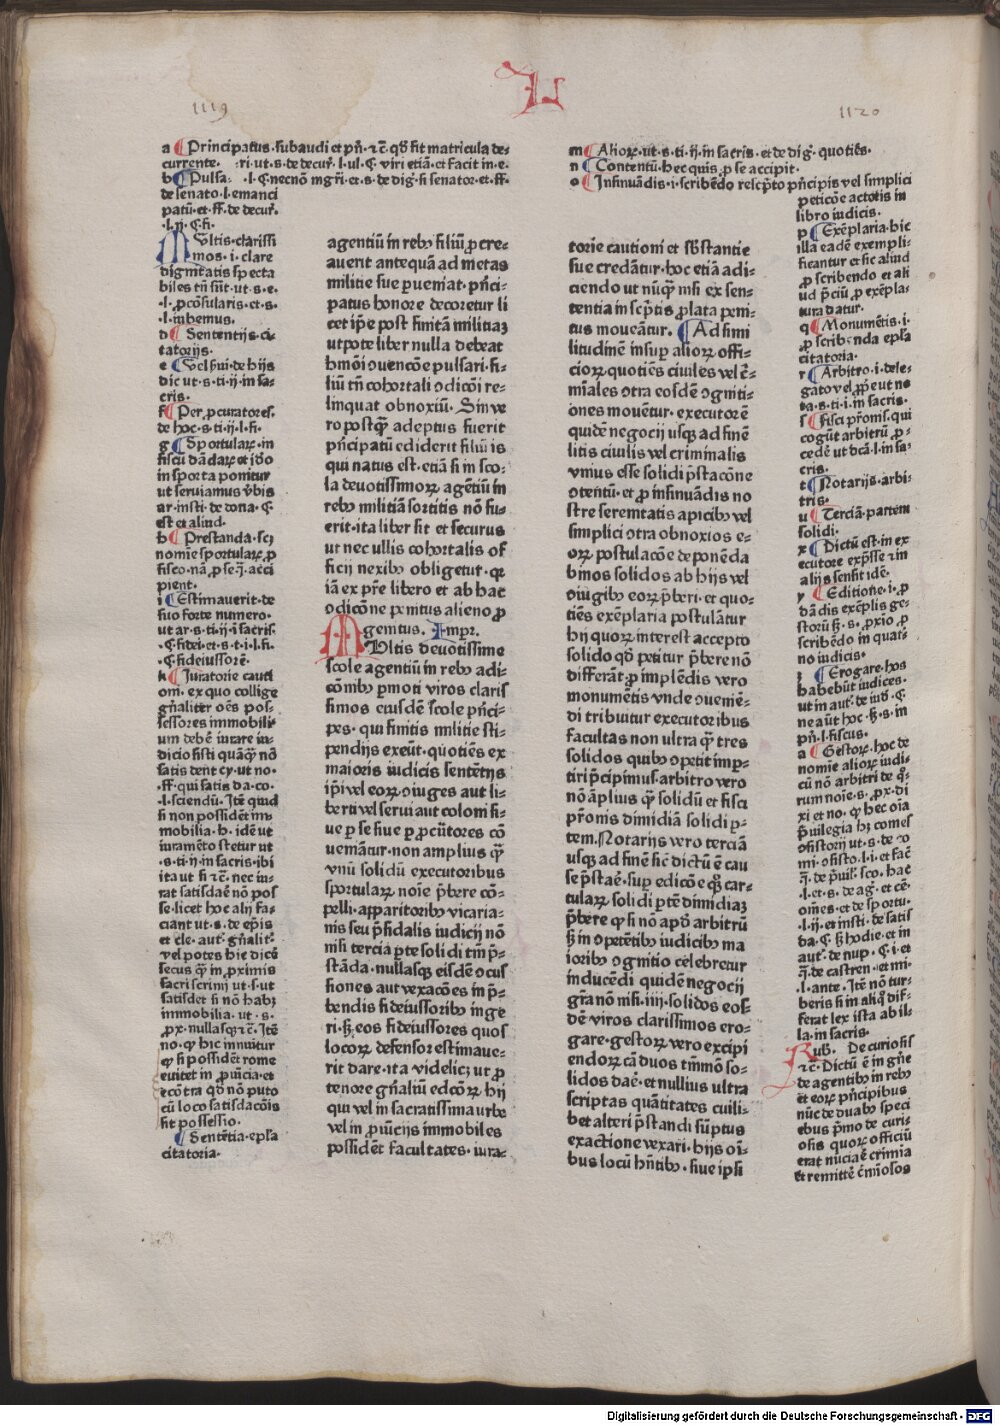 L
1119
1120
a Principatus. subaudi et pn̄. ⁊c̄. qđ sit matricula de-
currente. ut. s. de decur̄. l. ul. C. viri etiā. et facit in. e.
b Pulsa. l. C. necnō mgr̄i. et. s. de dig̅. si senator. et. ff.
de senato. l. emanci
patū. et. ff. de decur̄.
.l. ij. C. fi.
MUltis. clarissi
mos. i. clare
dignitatis specta
biles tn̄ sūt. ut. s. e.
.l. ꝓcōsularis. et. s.
.l. inbemus.
d Sententijs. ci-
tatorijs.
e
dic ut. s. ti. ij. in sa-
cris.
f Per, ꝓcuratores.
de hoc. s. ti. ij. l. fi.
g Sportulaꝝ. in
fiscū dādaꝝ et ideo
in sporta ponitur
ut seruiamus v̄bis
ar. insti. de dona. C.
est et aliud.
h Prestanda. scꝫ
nomīe sportulaꝝ ꝓ
fisco. nā, ꝓ se. q̄. acci
pient.
i Estimauerit. de
suo forte numero.
ut ar. s. ti. ij. i sacris.
.C. fidei. et. s. t. i. l. fi.
.C. fideiussorē.
k Iuratorie cauti
oni. ex quo collige
gn̄aliter oēs pos-
sessores immobili
um debēt iurare in-
dicio sisti quāqꝫ nō
satis dent cy. ut no.
.ff. qui satis da. co.
.l. sciendū. Itē quid
si non possidēt im-
mobilia. h. idē ut
iuramēto stetur ut
.s. ti. ij. in sacris. ibi
ita ut si ⁊c̄. nec iu-
rat satisdaē nō pos
se. licet hoc alij fa-
ciant ut. s. de ep̄is
et cle. aut. gn̄alit̄.
vel potes hic dicē
secus qꝫ in, ꝓximis
sacri scrinij ut. s. ut
satisdet si nō habꝫ
immobilia. ut. s.
.ꝓx. nullasqꝫ ⁊c̄. Itē
no. ꝙ hic innuitur
ꝙ si possidēt rome
euitet in ꝓuīcia. et
ecōtra qđ nō puto
cū loco satisdacōis
sit possessio.
Sentētia. ep̄la
citatoria.
agentiū in rebꝫ filiū, ꝓcre-
auerit antequā ad metas
militie sue ꝑueniat. pn̄ci-
patus honore decoretur li
cet ip̄e post finitā militiaꝫ
utpote liber nulla debeat
hmōi ↄuencōe pulsari. fi-
liū tn̄ cohortali ↄdicōi re-
linquat obnoxiū. Sin ve
ro postqꝫ adeptus fuerit
pn̄cipatū ediderit filiū is
qui natus est. etiā si in sco-
la deuotissimoꝝ agētiū in
rebꝫ militiā sortitis nō fu-
erit. ita liber sit et securus
ut nec ullis cohortalis of
ficij nexibꝫ obligetur. qꝛ
iā ex pr̄e libero et ab hac
ↄdicōne penitus alieno ꝓ
genitus. Impr̄.
MUltis deuotissime
scole agentiū in rebꝫ adi-
cōmbꝫ ꝑmoti viros claris
simos eiusdē scole pn̄ci-
pes. qui finitis militie sti-
pendijs exeūt. quotiēs ex
maioris iudicis sentētijs
ip̄i vel eoꝝ ↄiuges aut li-
beri vel serui aut coloni si-
ue ꝑ se siue ꝑ ꝓcūtores cō
ueniātur. non amplius qꝫ
vnū solidū executoribus
sportulaꝝ noīe p̄bere cō-
pelli. apparitoribꝫ vicaria-
nis seu p̄sidalis iudicij nō
nisi tercia ꝑte solidi tm̄ p̄-
stāda. nullasqꝫ eisdē ↄcus
siones aut vexacōes in p̄-
bendis fideiussoribꝫ inge
ri. sꝫ eos fideiussores quos
locoꝝ defensor estimaue-
rit dare. ita videlicꝫ ut ꝓ
tenore gn̄aliū edcōꝝ hij
qui vel in sacratissima urbe
vel in ꝓuīcijs immobiles
possidēt facultates. iura-
m Alioꝝ. ut. s. ti. ij. in sacris. et de dig̅. quotiēs.
n Contentū. hec quis, ꝓ se accipit.
o Insinuādis. i. scribēdo rescp̄to pn̄cipis vel simplici
peticōe actoris in
libro iudicis.
torie cautioni et sb̄stantie
sue credātur. hoc etiā adi-
ciendo ut nūqꝫ nisi ex sen-
tentia in scp̄tis ꝓlata peni-
tus moueātur. Ad simi
litudinē insuꝑ alioꝝ offi-
cioꝝ quotiēs ciuiles vel c̄i-
miales ↄtra eosdē ↄgniti-
ones mouētur. executorē
quidē negocij usqꝫ ad finē
litis ciuilis vel criminalis
vnius esse solidi p̄stacōne
ↄtentū. et ꝓ insinuādis no
stre serenitatis apicibꝫ vel
simplici ↄtra obnoxios e-
oꝝ postulacōe deponēda
binos solidos ab hijs vel
ↄiugibꝫ eoꝝ p̄beri. et quo-
tiēs exēplaria postulātur
hij quoꝝ interest accepto
solido qđ petitur p̄bere nō
differāt. ꝓ implēdis vero
monumētis vnde ↄueniē-
di tribuitur executoribus
facultas non ultra qꝫ tres
solidos quibꝫ ↄpetit imꝑ-
tiri p̄cipimus. arbitro vero
nō āplius qꝫ solidū et fisci
pr̄onis dimidiā solidi ꝑ-
tem. Notarijs vero terciā
usqꝫ ad finē sic dictū ē cau
se p̄staē. suꝑ edicōe qꝫ car-
tulaꝝ solidi ꝑtē dimidiaꝫ
p̄bere qꝫ si nō apđ arbitrū
sꝫ in ↄpetētibꝫ iudicibꝫ ma
ioribꝫ ↄgnitio celebretur
inducēdi quidē negocij
gr̄a nō nisi. iiij. solidos eos-
dē viros clarissimos ero-
gare. gestoꝝ vero excipi
endoꝝ cā duos tm̄mō so-
lidos daē. et nullius ultra
scriptas quātitates cuili-
bet alteri p̄standi sūptus
exactione vexari. hijs oī-
bus locū hn̄tibꝫ. siue ipsi
p Exēplaria. hic
illa eadē exempli-
ficantur et sic aliud
ꝓ scribendo et ali
ud p̄ciū ꝓ exēpla-
tura datur.
q Monumētis. i.
ꝓ scribenda ep̄la
citatoria.
r Arbitro. i. dele-
gato vel ꝓp̄e ut no
ta. s. ti. i. in sacris.
s Fisci pr̄onis. qui
cogūt arbitrū ꝓ-
cedē ut dc̄a. l. in sa-
cris.
t Notarijs. arbi-
tris.
u Terciā. partem
solidi.
x Dictū est. in ex
ecutore exp̄sse ⁊ in
alijs sensit idē.
y Editione. i. ꝓ
dādis exēplis ge-
storū sꝫ. s. ꝓxio, ꝓ
scribēdo in quat̄-
no iudicis.
z Erogare. hos
habebūt iudices.
ut in aut. de iud. C.
ne aūt hoc. sꝫ. s. in
pn̄. l. fiscus.
a Gestoꝝ. hoc de
nomīe alioꝝ iudi-
cū nō arbitri de qꝫ-
rum noīe. s. ꝓx. di
xi et no. ꝙ hec oīa
p̄uilegia hꝫ comes
ↄsistorij ut. s. de co
mi. ↄsisto. l. i. et facē
q̄. de p̄uil. sco. hac
.l. et. s. de ag̅. et cē.
om̄es. et de sportu.
.l. ij. et insti. de satis
da. C. sꝫ hodie. et in
aut. de nup. C. i. et
q̄. de castren. et mi.
.l. ante. Itē nō tur-
beris si in aliqꝫ dif-
ferat lex ista ab il-
la. in sacris.
Rub̄. De curiosis
⁊c̄. Dictū ē in gn̄e
de agentibꝫ in rebꝫ
et eoꝝ pn̄cipibus
nūc de duabꝫ speci
ebus p̄mo de curi-
osis quoꝝ officiū
erat nuciaē crimia
et remittē c̄mīosos
Digitalisierung gefördert durch die Deutsche Forschungsgemeinschaft - DFG